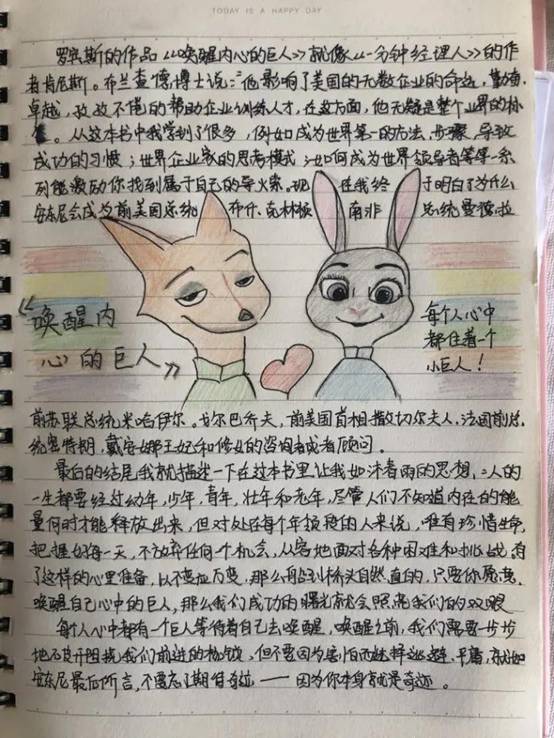 TODAY IS A HAPPY DAY
罗宾斯的作品《唤醒内心的巨人》就像《一分钟经理人》的作
者肯尼斯。布兰查德博士说:"他影响了美国的无数企业的命运,勤奋.
卓越,孜孜不倦的帮助企业训练人才,在这方面,他无疑是整个业界的
。从这本书中我学到了很多,例如成为世界第一的方法、步骤、导致
成功的习惯;世界企业家的思考模式;如何成为世界领导者等等一系
列能激励你找到属于自己的导火索.现在我终于明白了为什么
安东尼会成为前美国总统布什、克林顿南非总统曼德拉
《唤醒内
心的巨人》
每个人心中
都住着一个
小巨人!
前苏联总统米哈伊尔。戈尔巴乔夫,前美国首相撒切尔夫人,法国前总.
统密特朗,戴安娜王妃和修女的咨询者或者顾问.
最后的结尾我就描述一下在这本书里让我如沐春雨的思想,:人的
一生都要经过幼年,少年,青年,壮年和老年,尽管人们不知道内在的能
量何时才能释放出来,但对处在每个年龄段的人来说,唯有珍惜生命,
把握好每一天,不放弃任何一个机会,从容地面对各种困难和挑战,有
了这样的心里准备,以不变应万变,那么船到桥头自然直的,只要你愿意.
唤醒自己心中的巨人,那么我们成功的曙光就会照亮我们的双眼
每个人心中都有一个巨人等待着自己去唤醒,唤醒之前,我们需要一步步
地去艰开阻挠我们前进的枷锁,但不要因为害怕而选择逃避、平庸,就如
安东尼最后所言,不要忘记期待奇迹——因为你本身就是奇迹。